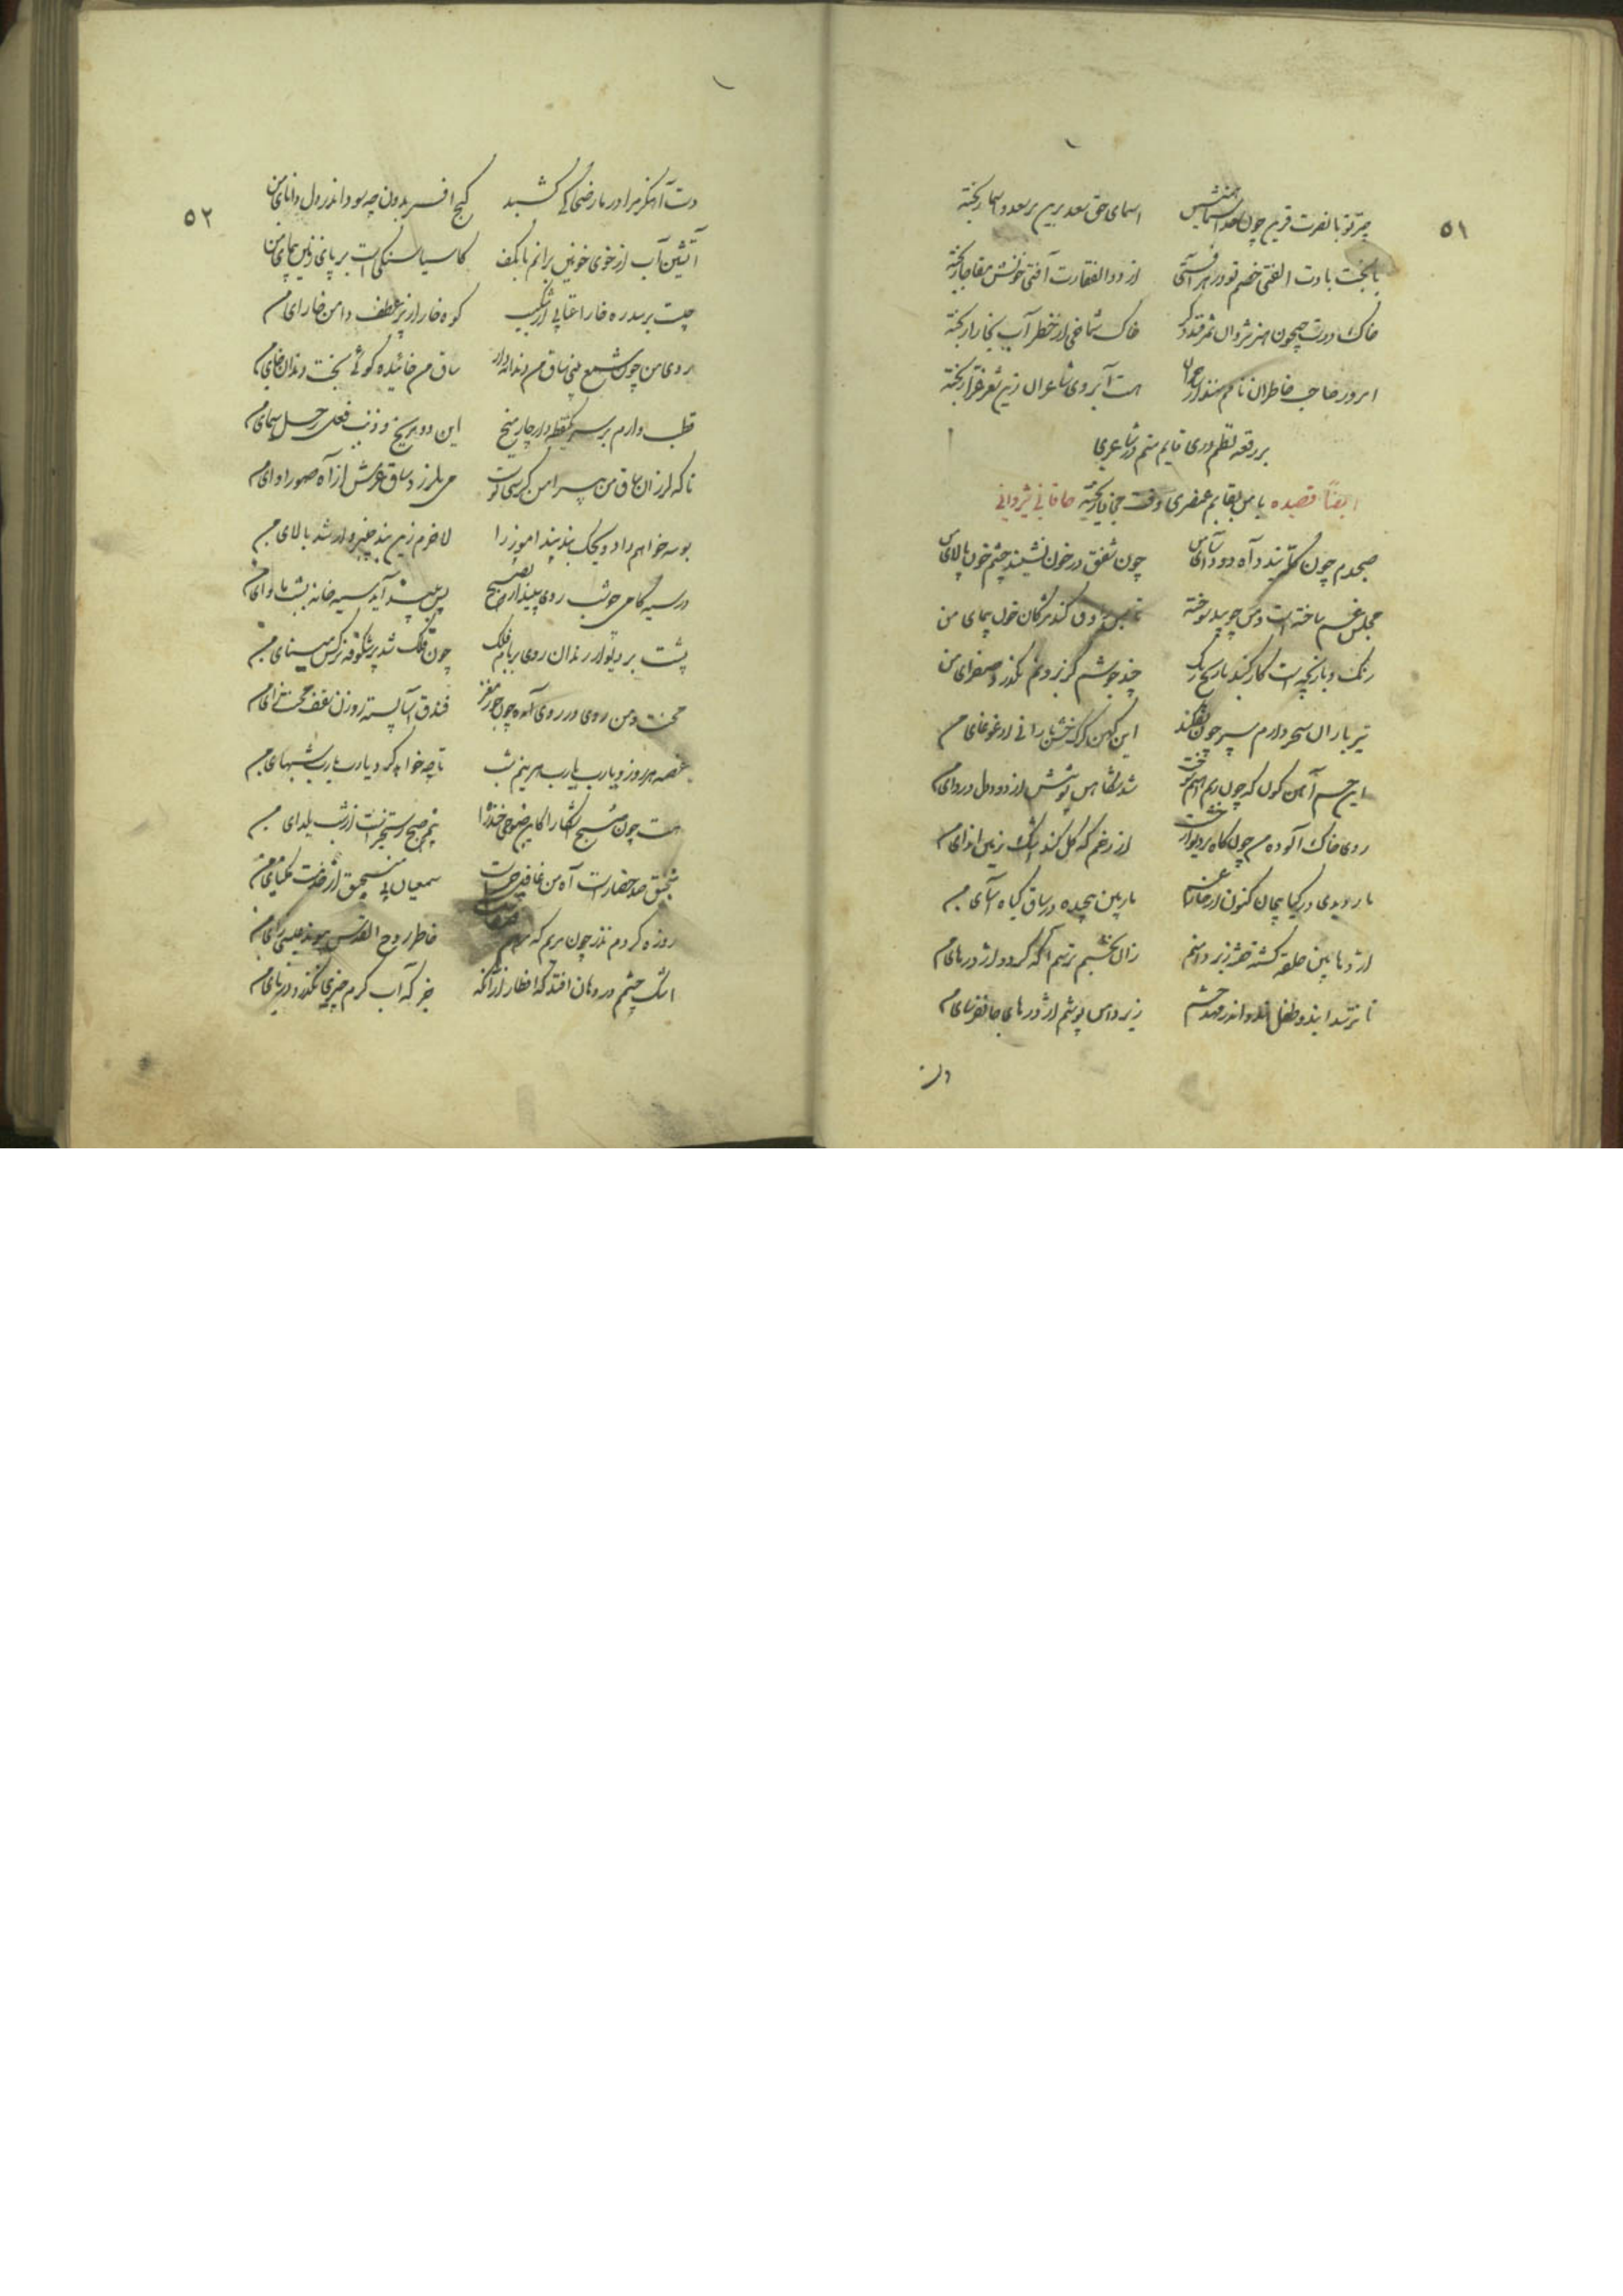 ۵۱
چتر تو با نصرت قرین چون همنشین اسمای حق سعد برین بر سعد اسما ریخته
با بخت بادت الفتی خصم تو در هر آفتی از ذوالفقارت آفتی خونش مفاجا ریخته
خاک درت جیحون هنر شروان سمرقند دگر خاک شماخی از خطر آب بخارا ریخته
امروز صاحب خاطران نامم نهند از هست آب روی شاعران زین شعر غرا ریخته
بر رقعه نظم دری قایم منم در شاعری
با من بقایم عنصری ریخته
ایضاً قصیده خاقانی شروانی
صبحدم چون کله بندد آه دود آسای من چون شفق در خون نشیند چشم خون پالای من
مجلس غم ساخته است و من چو بید سوخته تا بمن راوق کند مژگان خون پیمای من
رنگ و بازیچه است کار گنبد نارنج رنگ چند جوشم کز بروزنم نگذرد صفرای من
تیرباران سحر دارم سپر چون نفکند این کهن گرگ خشن بارانی از غوغای من
این خم آهن گون که چون ریم آهنم پالود و سوخت شد سکاهن پوشش از دود دل دروای من
روی خاک آلود من چون کاه بر دیوار از رخم کهگل کند اشک زمین اندای من
مار دیدی در گیا پیچان کنون در غار غم مار بین پیچیده در ساق گیاه آسای من
اژدها بین حلقه گشته خفته زیر دامنم زان نجنبم ترسم آگه گردد اژدرهای من
تا نترسند این دو طفل هندو اندر مهد چشم زیر دامن پوشم اژدرهای جانفرسای من
دست
۵۲
دست آهنگر مرا در مار ضحاکی کشید گنج افریدون چه سود اندر دل دانای من
آتشین آب از خوی خونین برانم تا بکعب کاسیا سنگ است بر پای زمین پیمای من
جیب من بر صدره خارا عتابی شد ز اشک کوه خارا زیر عطف دامن خارای من
روی من چون شمع بینی ساق من دندانه دار ساق من خائیده گوئی بخت دندان خای من
قطب وارم بر سر یک نقطه دارد چار میخ این دو مریخ ذنب فعل زحل سیمای من
تا که لرزان ساق من بر آهنین کرسی نشست می بلرزد ساق عرش از آه صور آوای من
بوسه خواهم داد ویحک بند پندآموز را لاجرم زین بند چنبروار شد بالای من
در سیه کامی چو شب روی سپید آرم چو صبح پس سپید آید سیه خانه بشب مأوای من
پشت بر دیوار زندان روی بر بام فلک چون فلک شد پر شکوفه نرگس بینای من
محنت و من روی در روی آمده چون جوز مغز فندق آسا بسته روزن سقف محنت زای من
غصه هر روز و یارب یارب هر نیم شب تا چه خواهد کرد یارب یارب شبهای من
هست چون صبح آشکارا کاین صبوحی چند را بیم صبح رستخیز است از شب یلدای من
منجنیق صد حصار است آه من غافل چراست شمعیان بی منجنیق از صدمت نکبای من
روزه کردم نذر چون مریم که هم مریم صفاست خاطر روح القدس پیوند عیسی زای من
اشک چشمم در دهان افتد گه افطار از آنکه جز که آب گرم چیزی نگذرد در نای من